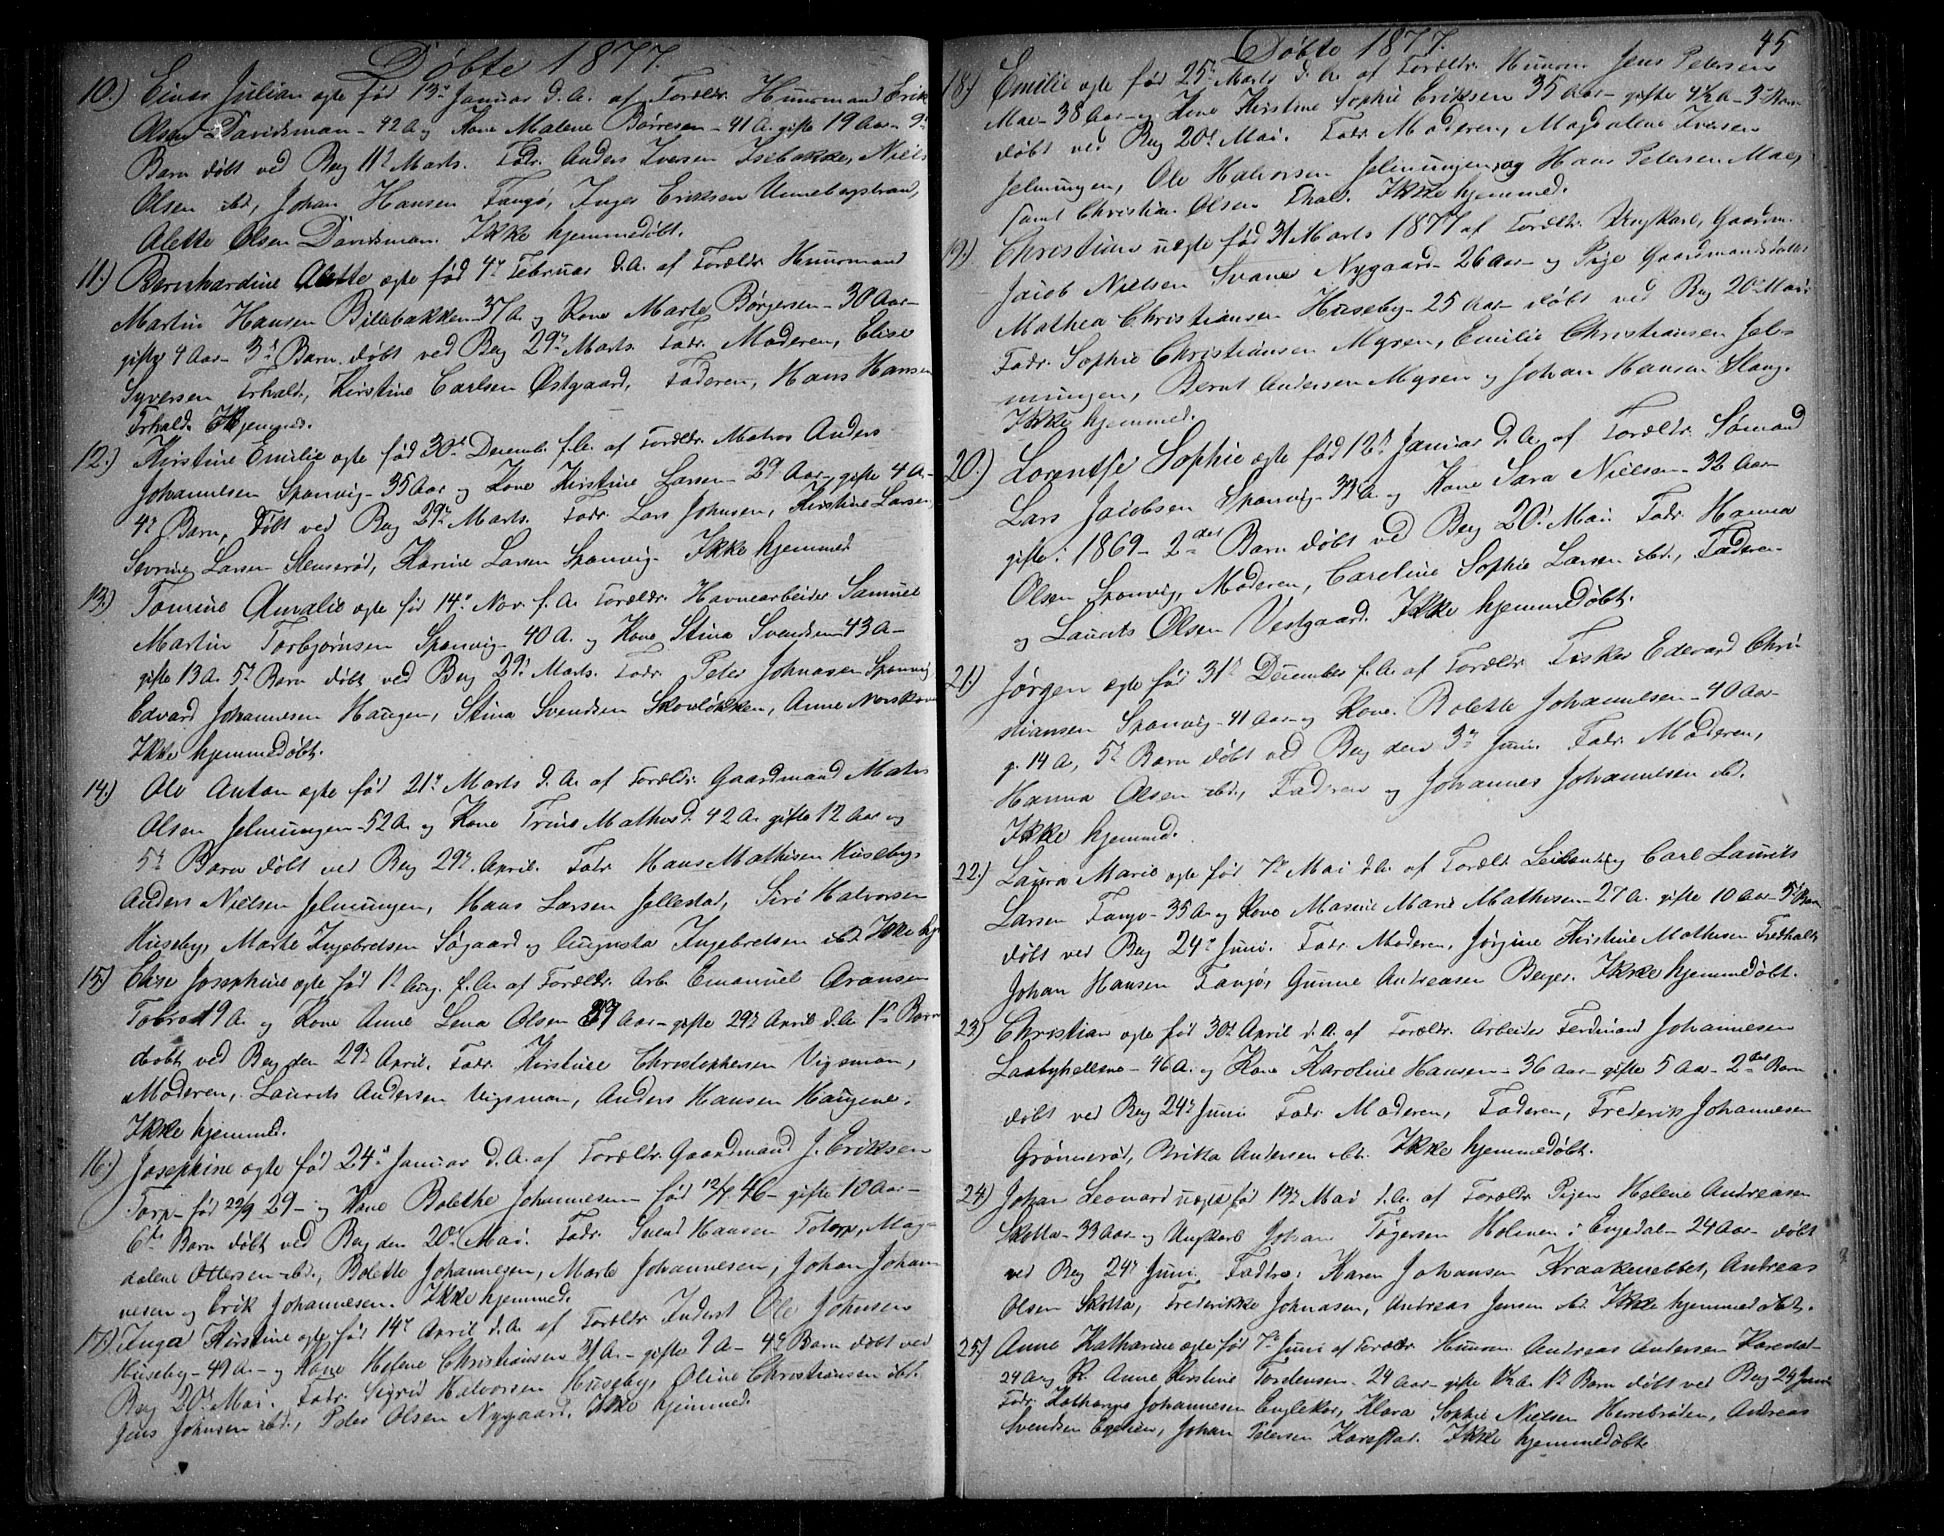 Döbte 1877.
10.) Einar Julian ægte før 13de Januar d.A. af Foræld. Huusmand Erik
Olsen Davidsman - 42 A. og Kone Malene Børresen - 41 A. gifte 19 Aar - 9de
Barn døbt ved Berg 11te Marts. Fadr. Anders Iversen Isebakke, Niels
Olsen ibd., Johan Hansen Fangø, Inger Eriksen Unnebogstrand,
Alette Olsen Davidsman. Ikke hjemmedøbt.
11.) Bernhardine Alette ægte fød 4de Februar d.A. af Foræld. Huusmand
Martin Hansen Billebakken 37 A. og Kone Marte Børgersen - 30 Aar -
gifte 4 Aar - 3de Barn døbt ved Berg 29de Marts. Fadr. Moderen, Elise
Syversen Torhald, Kirstine Carlsen Østgaard, Faderen, Hans Hansen
Ikke hjemmed.
12.) Kirstine Emilie ægte fød 30te Decemb. f.A. af Foræld. Matros Anders
Johannesen Sponvig - 35 Aar og Kone Kirstine Larsen - 29 Aar gifte 4 A -
4de Barn, døbt ved Berg 29de Marts. Fadr. Lars Johnsen, Kirstine Larsen,
Sevrine Larsen Stenserød, Karine Larsen Sponvig. Ikke hjemmed
13.) Tomine Amalie ægte fød 14de Nov. f.A. Foræld. Havnearbeider Samuel
Martin Torbjørnsen Sponvig - 40 A. og Kone Stina Svendsen 43 A -
gifte 13 A. 5te Barn døbt ved Berg 29de Marts. Fadr. Peter Johnasen Sponvig
Edvard Johannesen Haugen, Stina Svendsen Skovløkken, Anne
Ikke hjemmedøbt.
14.) Ole Anton ægte fød 21de Marts d.A. af Foræld. Gaardmand Mathis
Olsen Jelmungen - 52 A. og Kone Trine Mathisd. 42 A. gifte 12 Aar og
5te Barn døbt ved Berg 29de April. Fadr. Hans Mathisen Huseby,
Anders Nielsen Jelmungen, Hans Larsen Jellestad, Siri Halvorsen
Huseby, Marte Ingebretsen Søgaard og Augusta Ingebretsen ibd. Ikke hj.
15.) Elise Josephine ægte fød 1te Aug. f.A. af Foræld. Arb. Emanuel Aronsen
19 A. og Kone Anne Lena Olsen 29 Aar - gifte 29de April d.A. 1te Barn
døbt ved Berg den 29de April. Fadr. Kirstine Christophersen Vigsman,
Moderen, Laurits Andersen Vigsman, Anders Hansen Haugene.
Ikke hjemmed.
16.) Josephine ægte fød 24de Januar d.A. af Foræld. Gaardmand J. Eriksen
Torp - fød 22/9 29 - og Kone Bolethe Johannesen fød 12/7 46 - gifte 10 Aar -
6te Barn døbt ved Berg den 20de Mai. Fadr. Svend Hansen Totorp, Mag-
dalene Ottersen ibd., Bolette Johannesen, Marte Johannesen, Johan Johan-
nesen og Erik Johannesen. Ikke hjemmed.
17.) Inga Kirstine ægte fød 14de April d.A. af Foræld. Inderst Ole Johnsen
Huseby - 49 A. - og Kone Helene Christiansen 31 A. - gifte 9 A - 4de Barn døbt ved
Berg 20de Mai. Fadr. Sigrid Halvorsen Huseby, Oline Christiansen ibd.
Jens Johnsen ibd., Peter Olsen Nygaard. Ikke hjemmed.
Döbte 1877. 45
18.) Emilie ægte fød 25de Marts d.A. af Foræld. Huusm. Jens Petersen
Mae - 38 Aar - og Kone Kirstine Sophie Eriksen 35 Aar - gifte 4½ A - 3de Barn
døbt ved Berg 20de Mai. Fadr. Moderen, Magdalene Iversen
Jelmungen, Ole Halvorsen Jelmungen og Hans Petersen Mae,
samt Christian Olsen Ikke hjemmed.
19.) Christian uægte fød 31 Marts 1877 af Foræld. Ungkarl, Gaardm.
Jacob Nielsen Svane Nygaard - 26 Aar - og Pige Gaardmandsdatter
Mathea Christiansen Huseby - 25 Aar - døbt ved Berg 20de Mai
Fadr. Sophie Christiansen Myren, Emilie Christiansen Jel-
mungen, Bernt Andersen Mysen og Johan Hansen
Ikke hjemmed.
20.) Lorentse Sophie ægte fød 12te Januar d.A. af Foræld. Sømand
Lars Jacobsen Sponvig - 33 A. og Kone Sara Nielsen - 32 Aar -
gifte i 1869 - 2det Barn døbt ved Berg 20de Mai Fadr. Hanna
Olsen Sponvig, Moderen, Caroline Sophie Larsen ibd., Faderen
og Laurits Olsen Vestgaard. Ikke hjemmedøbt.
21.) Jørgen ægte fød 31te December f.A. af Foræld. Fisker Edevard Chri-
stiansen Sponvig - 41 Aar - og Kone Bolette Johannesen - 40 Aar -
g. 14 A, 5te Barn døbt ved Berg den 3de Juni. Fadr. Moderen,
Hanna Olsen ibd., Faderen og Johannes Johannesen ibd.
Ikke hjemmed.
22.) Laura Marie ægte fød 7de Mai d.A. af Foræld. Leilænding Carl Laurits
Larsen Fangø - 35 A. og Kone Masine Marie Mathisen - 27 A. gifte 10 Aar 5te Barn
døbt ved Berg 24de Juni. Fadr. Moderen, Jørgine Kirstine Mathisen
Johan Hansen Fangø, Gunne Andreasen Berger. Ikke hjemmedøbt.
23.) Christian ægte fød 30de April d.A. af Foræld. Arbeider Ferdinand Johannesen
Laabyhellene - 46 A. og Kone Karoline Hansen - 36 Aar - gifte 5 Aar - 2det Barn
døbt ved Berg 24de Juni Fadr. Moderen, Faderen, Frederik Johannesen
Grønnerød, Britta Andersen ibd. Ikke hjemmedøbt.
24.) Johan Leonard uægte fød 13de Mai d.A. af Foræld. Pigen Helene Andreasen
Skotta - 33 Aar - og Ungkarl Johan Tøgersen Holmen i Engedal - 24 Aar - døbt
ved Berg 24de Juni Fadre: Karen Johansen Kraakenebbet, Andreas
Olsen Skotta, Frederikke Johnasen, Andreas Jensen ibd. Ikke hjemmedøbt.
25.) Anne Katharine ægte fød 7de Juni af Foræld. Huusm. Andreas Andersen Karestad
24 A. og K. Anne Kirstine Tordensen. 24 Aar - gifte ½ A. 1te Barn døbt ved Berg 24 Juni
Fadr. Katharine Johannesen Engleker, Klara Sophie Nielsen Herrebrøden, Andreas
Svendsen Johan Petersen Karestad. Ikke hjemmedøbt